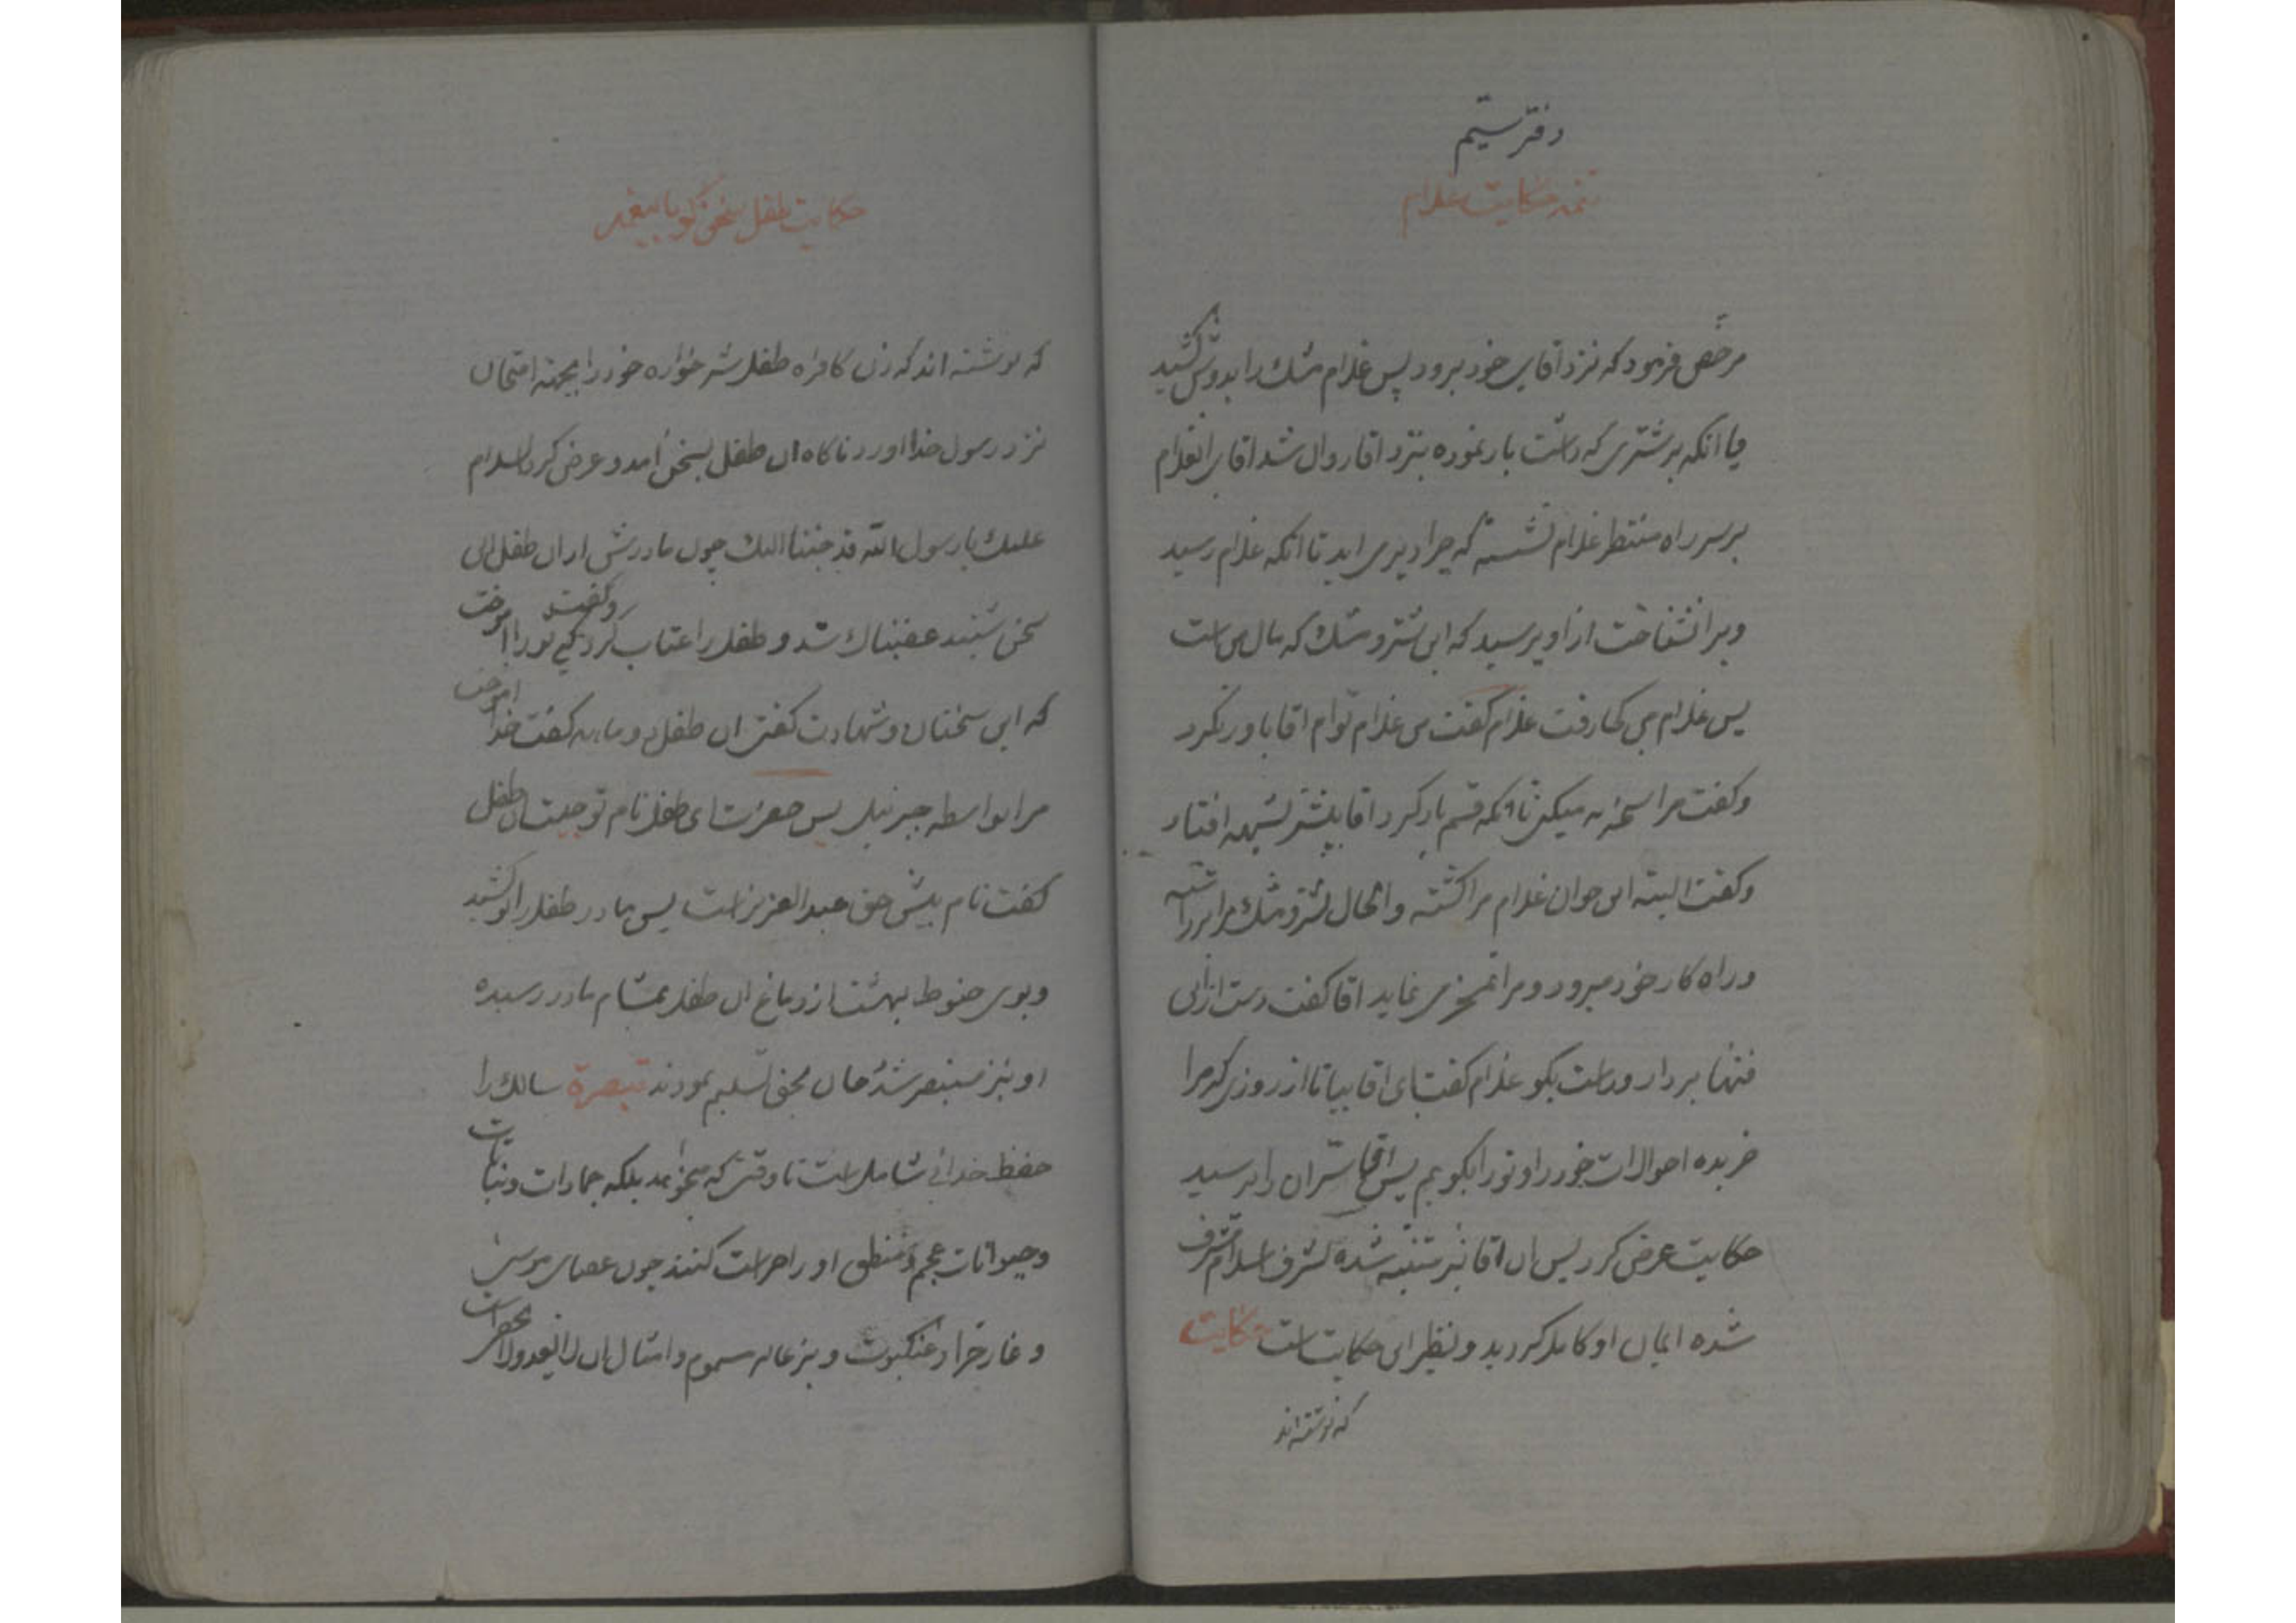 دفتر سیّم
تتمه حکایت غلام
مرخص فرمود که نزد اقای خود برود پس غلام مشک را بدوش کشید
یا انکه بر شتری که داشت بار نموده بنزد اقا روان شد اقای انغلام
بر سر راه منتظر غلام نشسته که چرا دیر می اید تا انکه غلام رسید
ویرا نشناخت از او پرسید که این شتر و مشک که مال من است
پس غلام من کجا رفت غلام گفت من غلام توام اقا باور نکرد
و گفت مرا سخریه میکنی تا انکه قسم یاد کرد اقا بیشتر بشبهه افتاد
و گفت البته این جوان غلام مرا کشته و الحال شتر و مشک مرا برداشته
و راه کار خود میرود و مرا تمسخر می نماید اقا گفت دست از این
فتنها بردار و راست بگو غلام گفت ای اقا بیا تا از روزی که مرا
خریده احوالات خود را و تو را بگویم پس اقا سران را پرسید
حکایت عرض کرد پس ان اقا نیز متنبه شده بشرف اسلام مشرف
شده ایمان او کامل گردید و نظیر این حکایت است حکایت
که نوشته اند
حکایت طفل سخن گو با پیغمبر
که نوشته اند که زن کافره طفل شیر خواره خود را بجهته امتحان
نزد رسول خدا اورد ناگاه ان طفل بسخن امد و عرض کرد السلام
علیک یا رسول الله قد جئنا الیک چون مادرش از ان طفل این
سخن شنید غضبناک شد و طفل را عتاب کرد و گفت کی تو را اموخت
که این سخنان و شهادت گفتن ان طفل دو ماهه گفت خدا اموخت
مرا بواسطه جبرئیل پس حضرت ای طفل نام تو چیست ان طفل
گفت نام پیش حق عبدالعزیز است پس مادر طفل را بو کشید
و بوی حنوط بهشت از دماغ ان طفل بمشام مادر رسیده
او نیز مستبصر شده جان بحق تسلیم نمودند تبصرة سالک را
حفظ خدائی شامل است تا وقتی که میخواهد بلکه جمادات و نباتات
و حیوانات عجم و منطق او را حراست کنند چون عصای موسی
و غار حرا و عنکبوت و بزغاله مسموم و امثال ان لا یعد و لا یحصی است